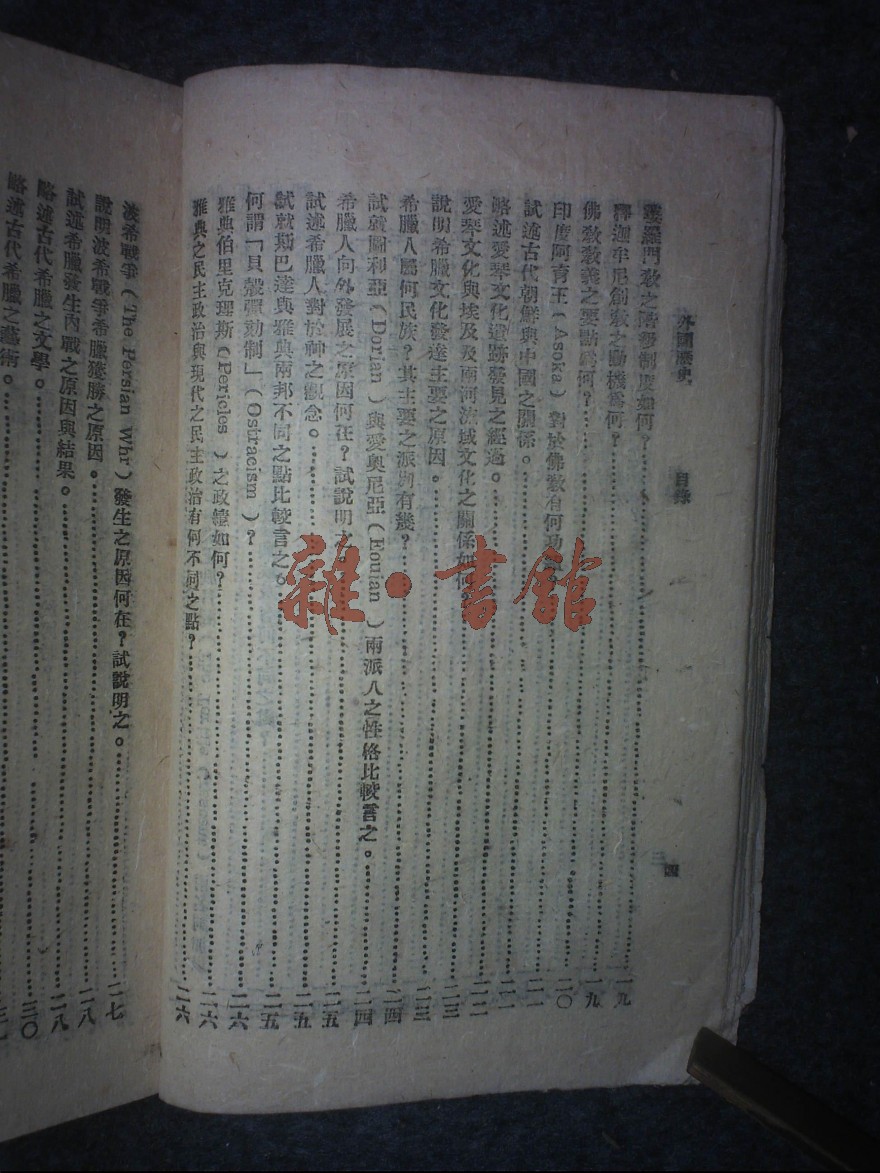 外國歷史 目錄 四
婆羅門教之階級制度如何？……一九
釋迦牟尼創教之動機爲何？……一九
佛教教義之要點爲何？……二〇
印度阿育王（Asoka）對於佛教有何功……二一
試述古代朝鮮與中國之關係。……二一
略述愛琴文化遺跡發見之經過。……二二
愛琴文化與埃及及兩河流域文化之關係如何……二三
說明希臘文化發達主要之原因。……二三
希臘人屬何民族？其主要之派別有幾？……二四
試就圖利亞（Dorian）與愛奧尼亞（Eouian）兩派人之性格比較言之。……二四
希臘人向外發展之原因何在？試說明之。……二五
試述希臘人對於神之觀念。……二五
試就斯巴達與雅典兩邦不同之點比較言之。……二五
何謂「貝殼彈劾制」（Ostracism）？……二六
雅典伯里克理斯（Pericles）之政績如何？……二六
雅典之民主政治與現代之民主政治有何不同之點？……二六
波希戰爭（The Persian Whr）發生之原因何在？試說明之。……二七
說明波希戰爭希臘獲勝之原因。……二八
試述希臘發生內戰之原因與結果。……二八
略述古代希臘之文學。……三〇
略述古代希臘之藝術。……
雜·書館